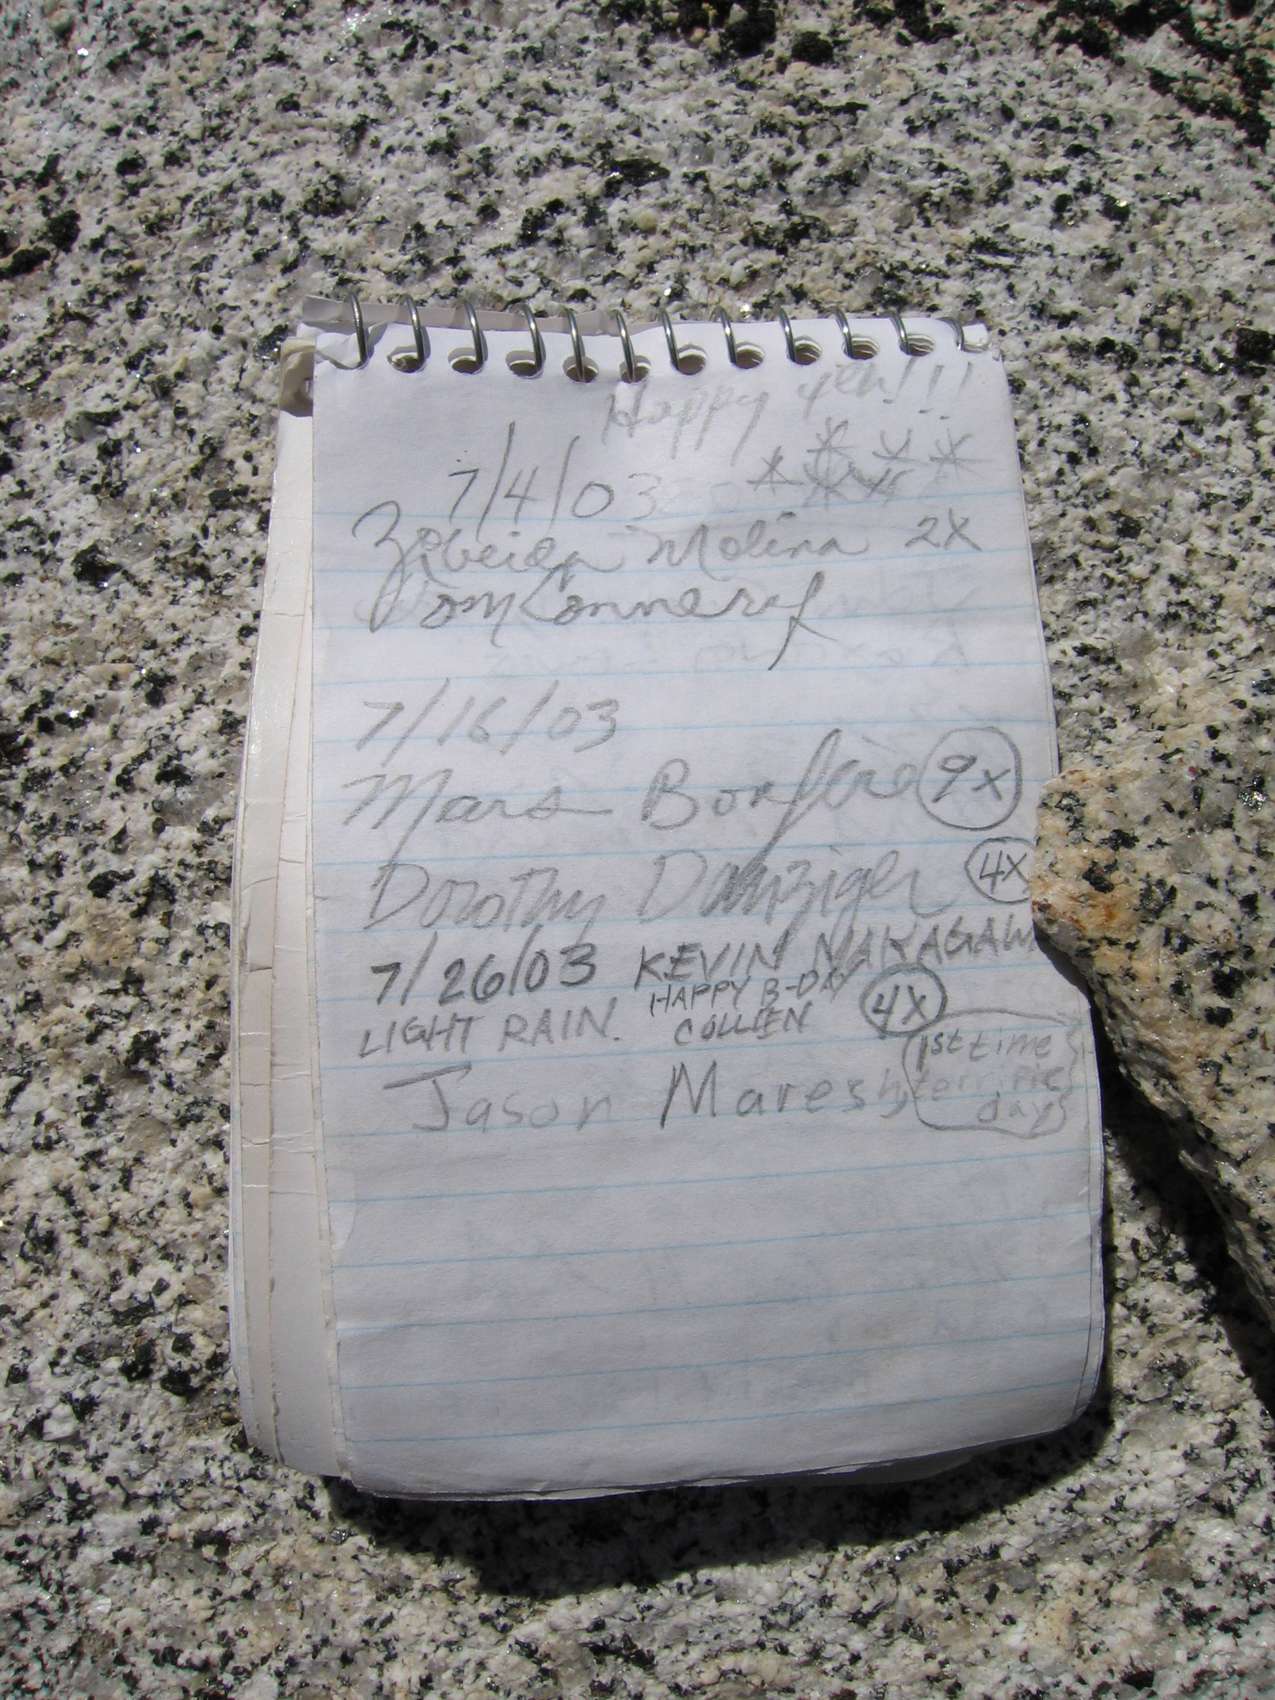 Happy 4th!!!
7/4/03
Zobeida Molina 2X
Tom Connery
7/16/03
Mars Bonfire 9X
Dorothy Danziger 4X
7/26/03 KEVIN NAKAGAWA
LIGHT RAIN. HAPPY B-DAY
COLLEEN 4X
Jason Maresh
1st time
terrific
day